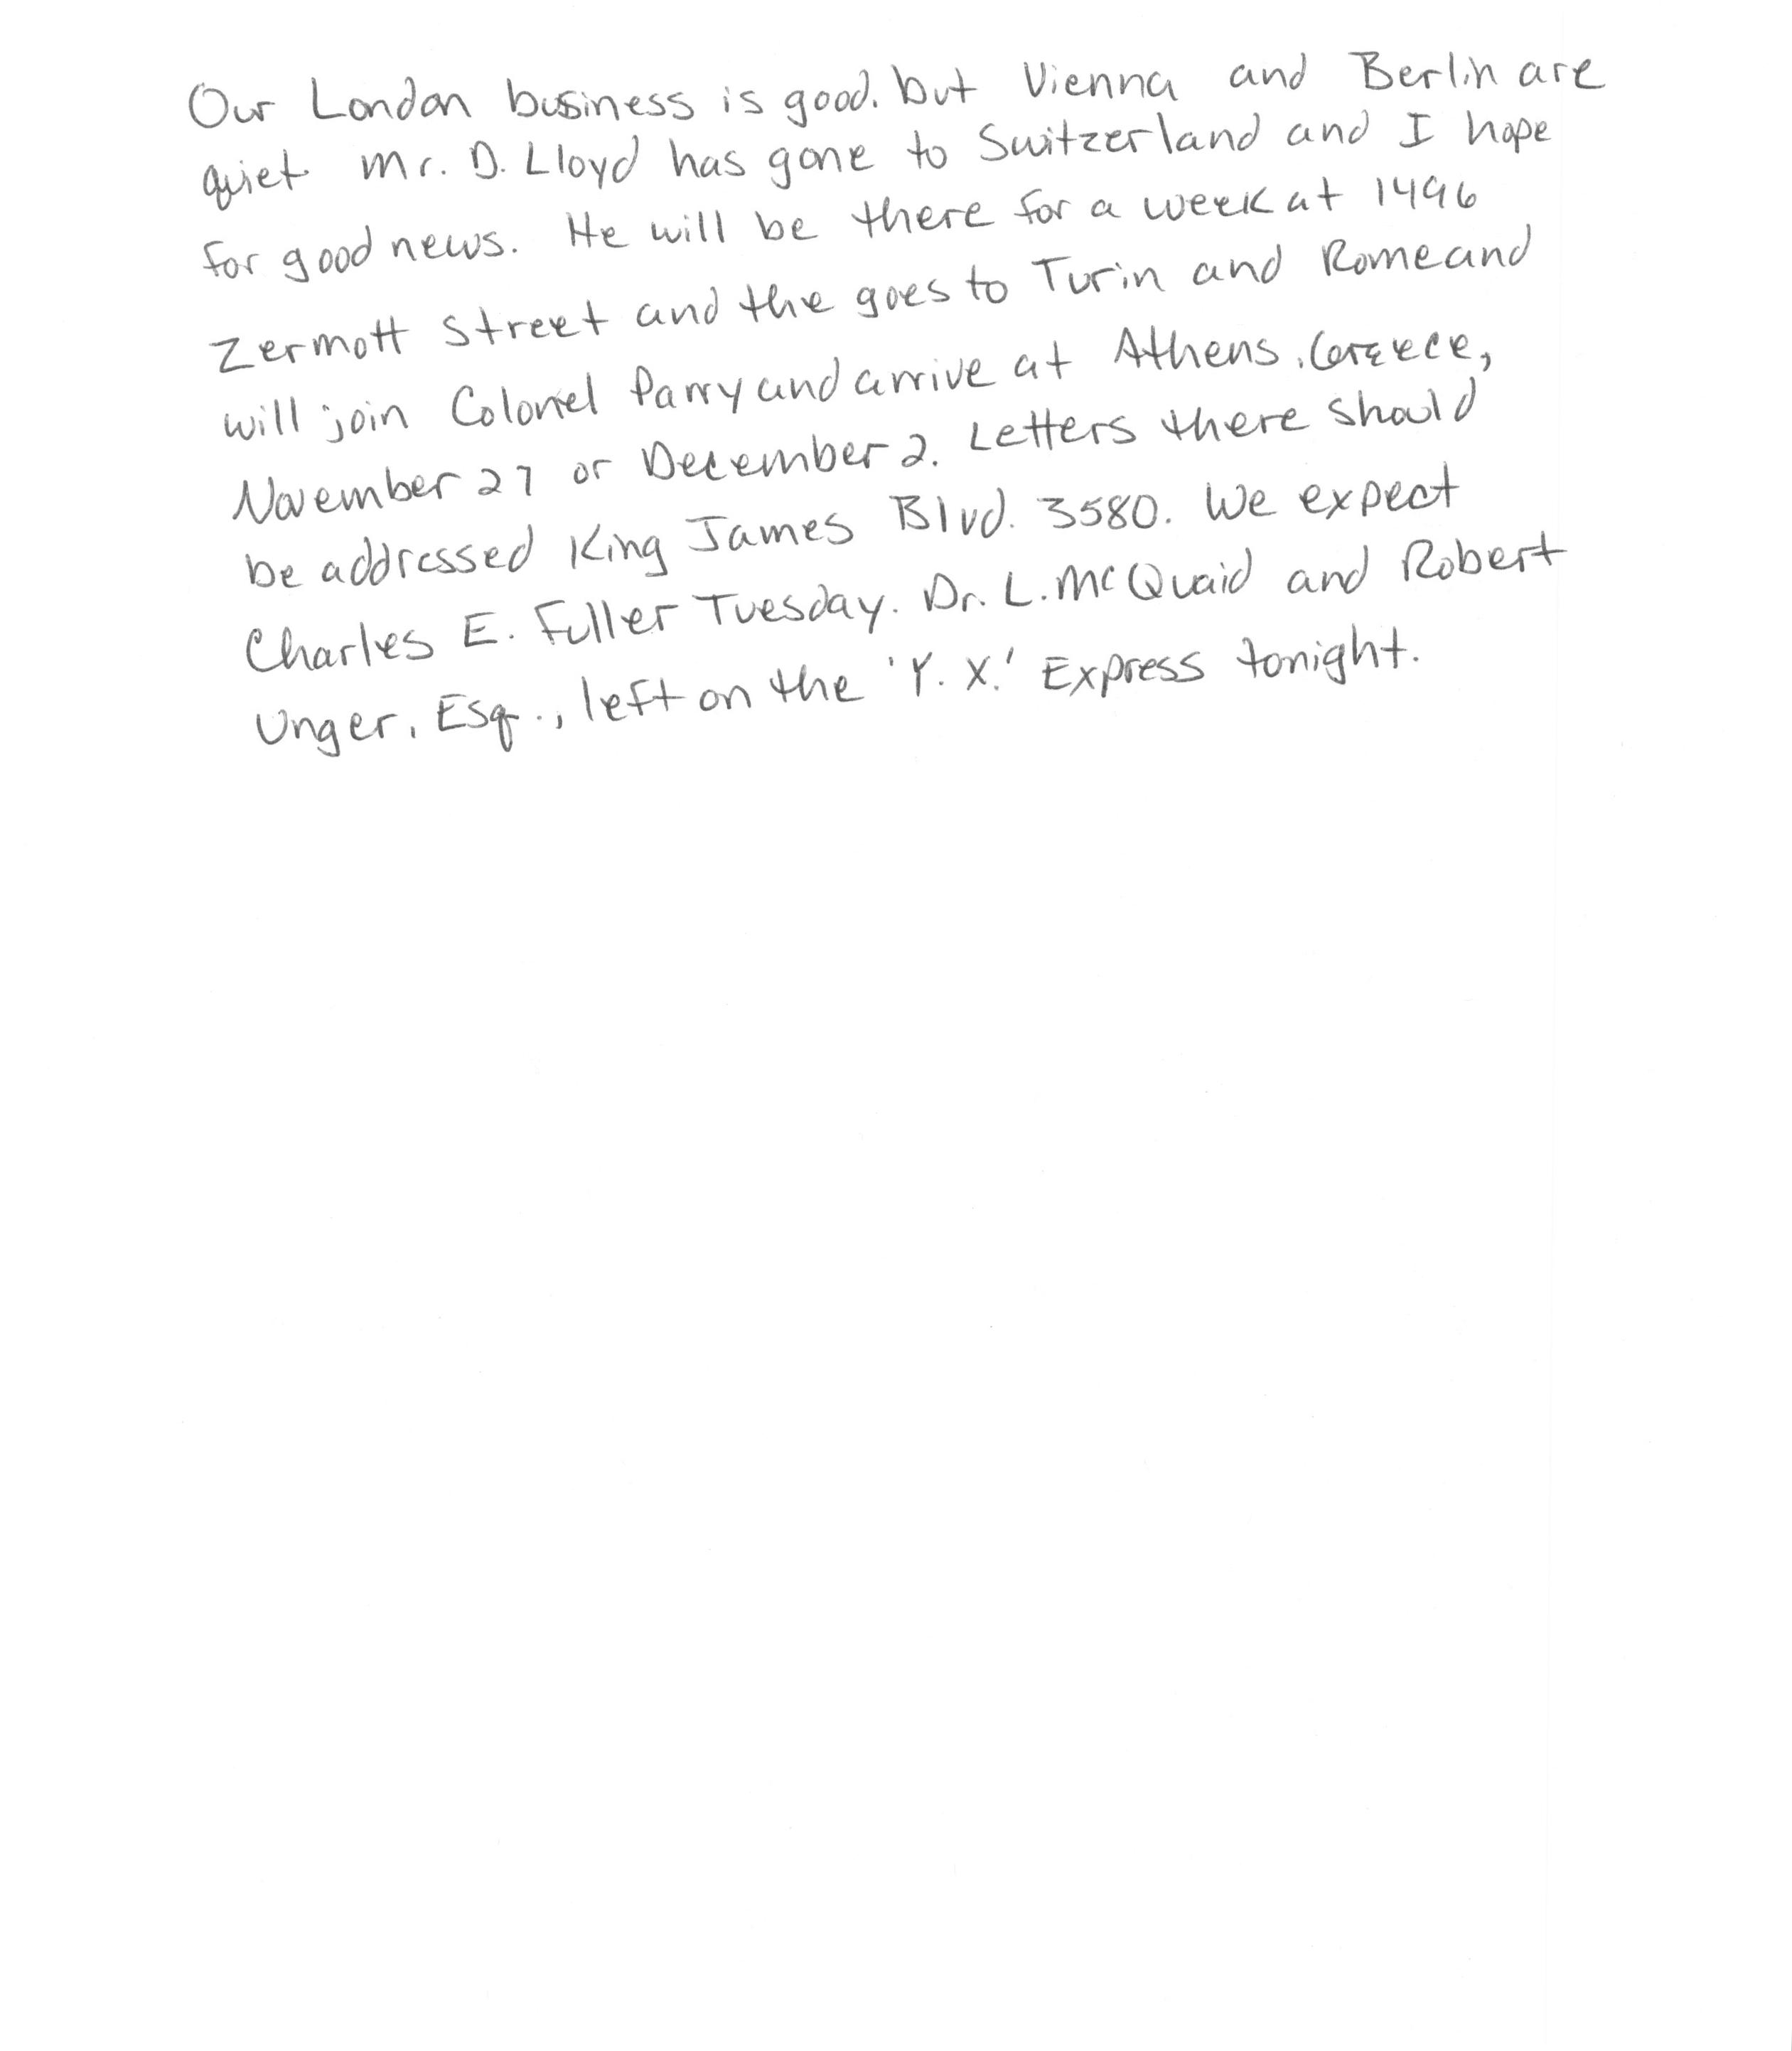 Our London business is good. but Vienna and Berlin are
quiet. Mr. D. Lloyd has gone to Switzerland and I hope
for good news. He will be there for a week at 1496
Zermott Street and the goes to Turin and Rome and
will join Colonel Parry and arrive at Athens, Greece,
November 27 or December 2. Letters there should
be addressed King James Blvd. 3580. We expect
Charles E. Fuller Tuesday. Dr. L. McQuaid and Robert
Unger, Esq., left on the 'Y. X.' Express tonight.